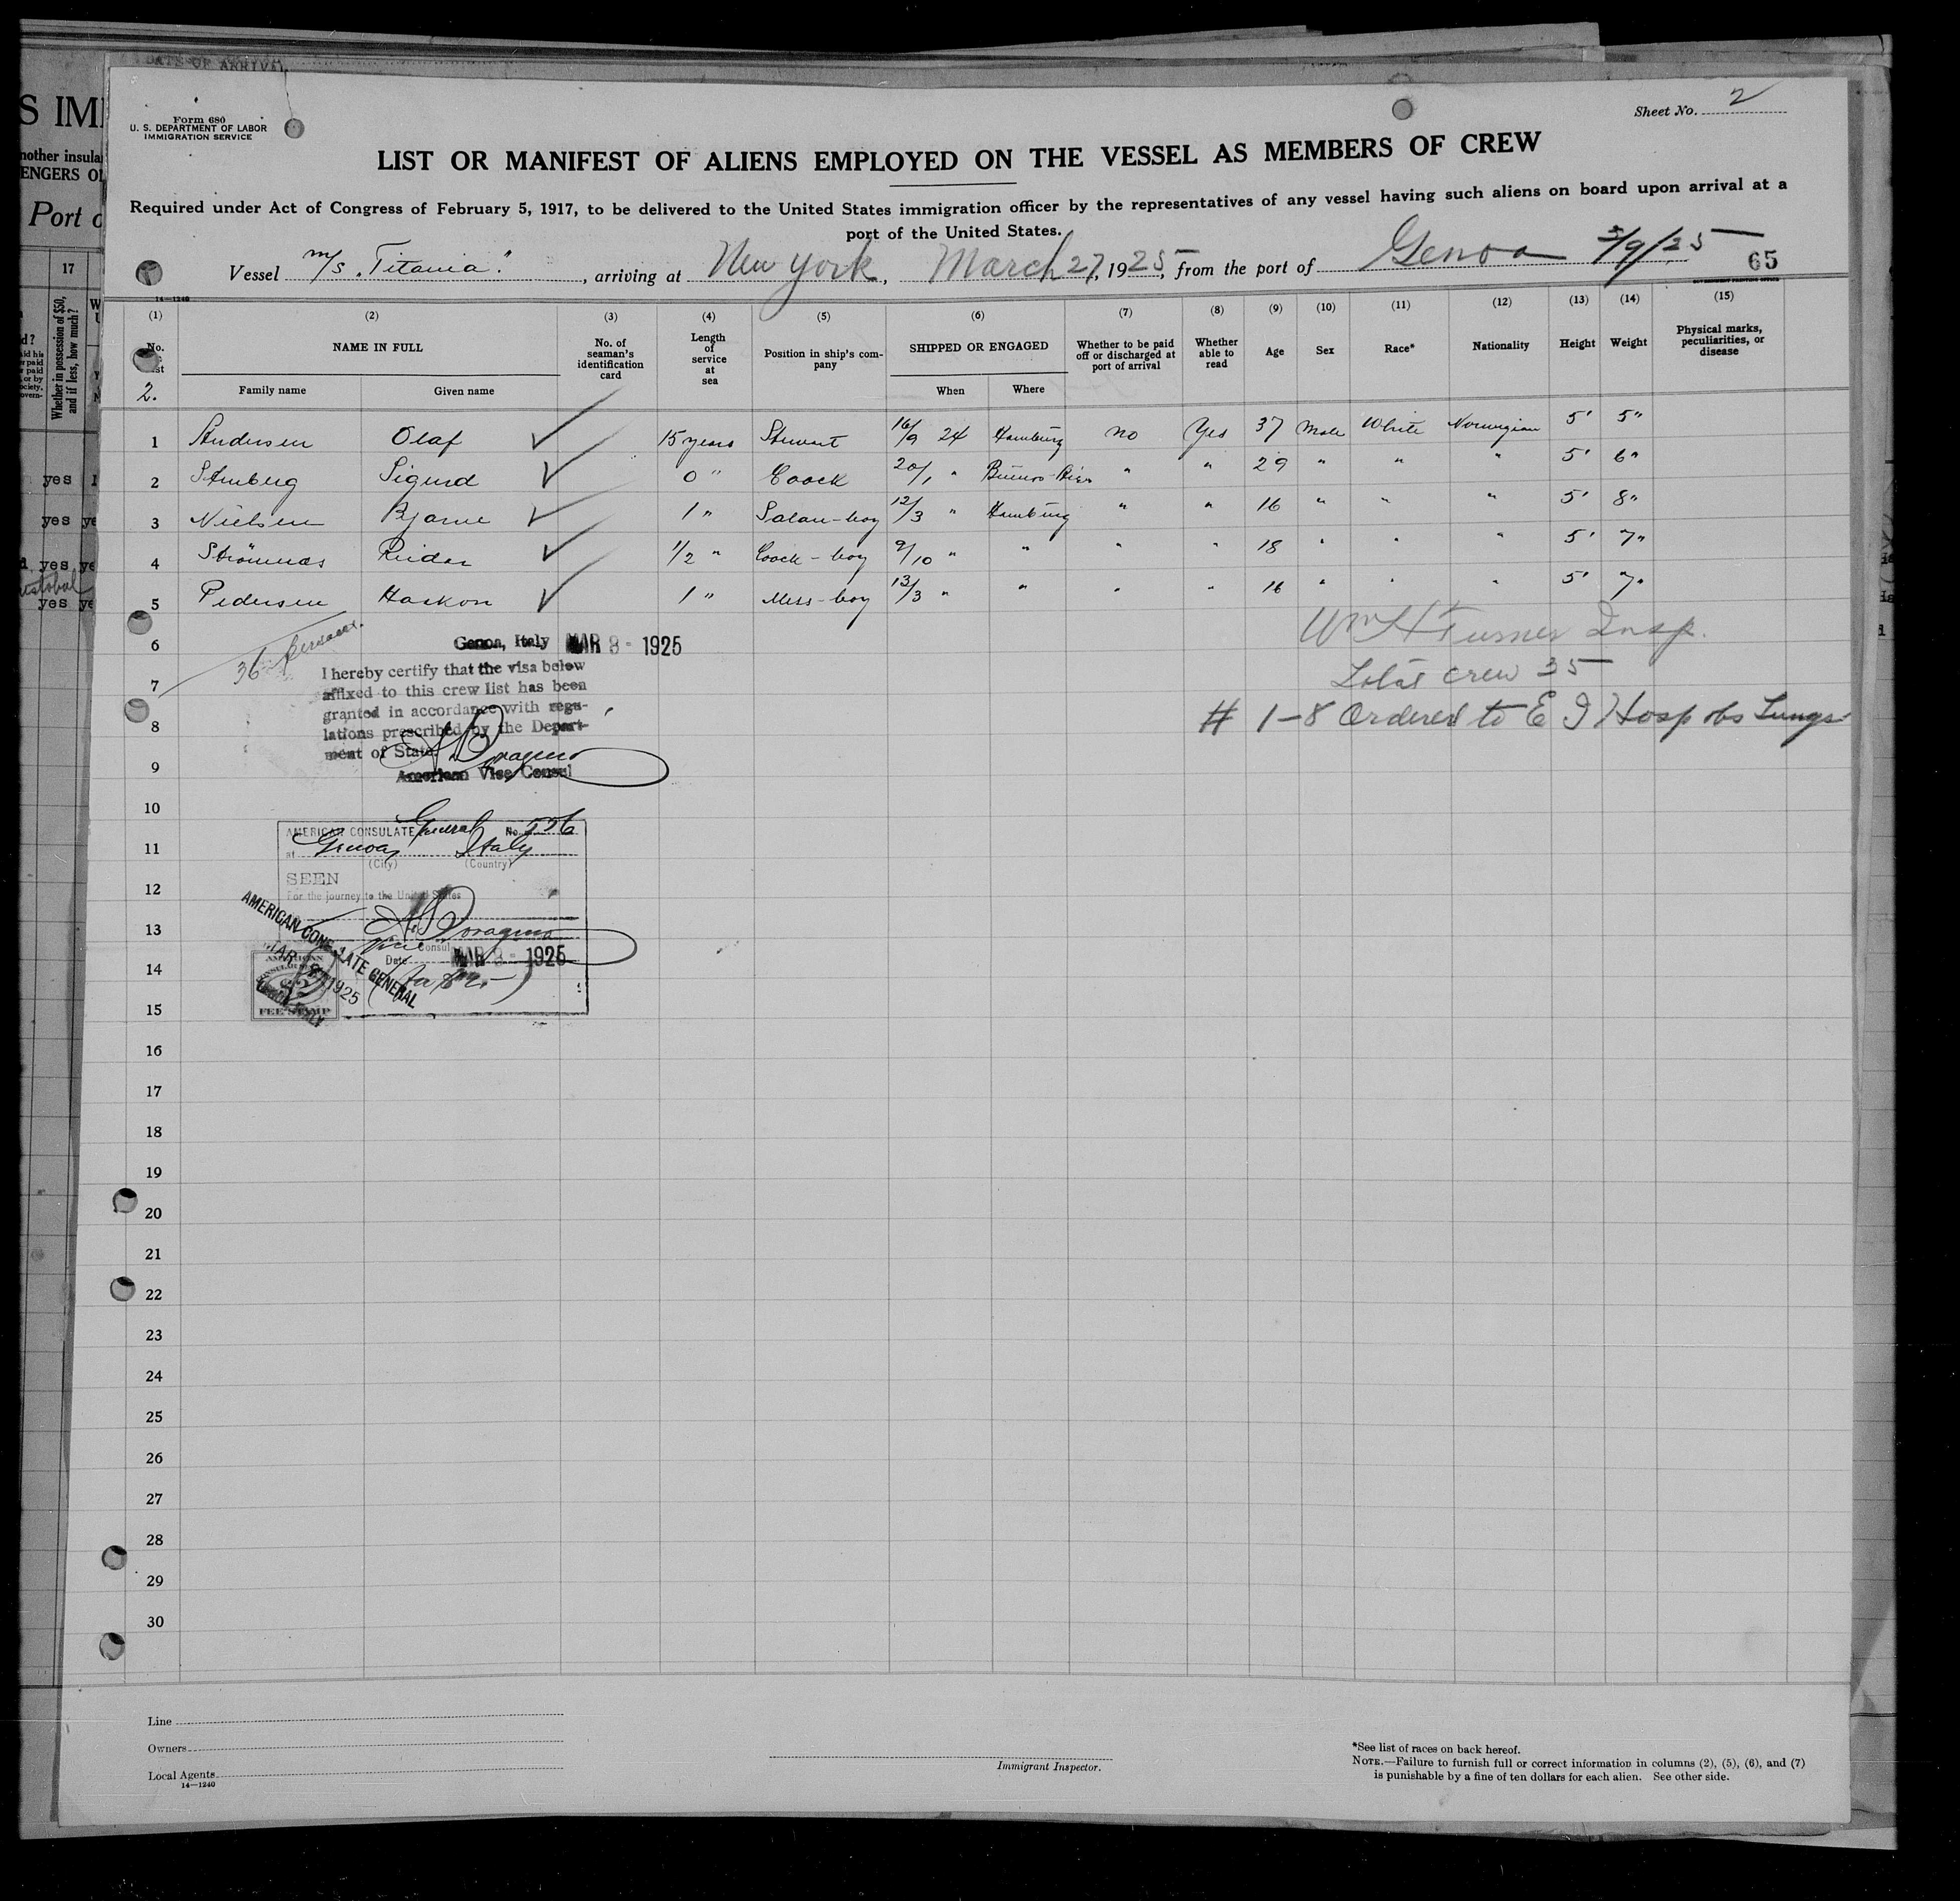 DATE OF ARRIVAL
S IM
nother insula
ENGERS O
Port o
17
Whether in possession of $50, and if less, how much?
yes
yes ye
yes ye
yes ye
Form 680
U. S. DEPARTMENT OF LABOR
IMMIGRATION SERVICE
Sheet No. 2
LIST OR MANIFEST OF ALIENS EMPLOYED ON THE VESSEL AS MEMBERS OF CREW
Required under Act of Congress of February 5, 1917, to be delivered to the United States immigration officer by the representatives of any vessel having such aliens on board upon arrival at a
port of the United States.
Vessel m/s "Titania", arriving at New York, March 27, 1925, from the port of Genoa 3/9/25 65
14—1240
(1) (2) (3) (4) (5) (6) (7) (8) (9) (10) (11) (12) (13) (14) (15)
No. NAME IN FULL No. of seaman's identification card Length of service at sea Position in ship's company SHIPPED OR ENGAGED Whether to be paid off or discharged at port of arrival Whether able to read Age Sex Race* Nationality Height Weight Physical marks, peculiarities, or disease
2. Family name Given name When Where
1 Andersen Olaf 15 years Stewart 16/9 24 Hamburg no Yes 37 Male White Norwegian 5' 5"
2 Sigurd 0 " Coock 20/1 " Buenos-Aires " " 29 " " " 5' 6"
3 Nielsen Bjarne 1 " Salan-boy 12/3 " Hamburg " " 16 " " " 5' 8"
4 Reidar 1/2 " Coock-boy 9/10 " " " " 18 " " " 5' 7"
5 Pedersen Haakon 1 " Mess-boy 13/3 " " " " 16 " " " 5' 7"
6
36
Genoa, Italy MAR 8 - 1925
Wm H Turner Insp.
7
I hereby certify that the visa below
affixed to this crew list has been
granted in accordance with regu-
lations prescribed by the Depart-
ment of State.
Total crew 35
8
# 1-8 Ordered to E I Hosp obs Lungs
9
American Vice Consul
10
AMERICAN CONSULATE General No. 556
11
at Genoa, Italy
(City) (Country)
12
SEEN
For the journey to the United States
13
Vice Consul
Date MAR 8 - 1925
AMERICAN CONSULATE GENERAL
MAR 8 1925
14
AMERICAN
CONSULAR
$2
FEE STAMP
15
16
17
18
19
20
21
22
23
24
25
26
27
28
29
30
Line
Owners
Local Agents
14—1240
Immigrant Inspector.
*See list of races on back hereof.
NOTE.—Failure to furnish full or correct information in columns (2), (5), (6), and (7)
is punishable by a fine of ten dollars for each alien. See other side.